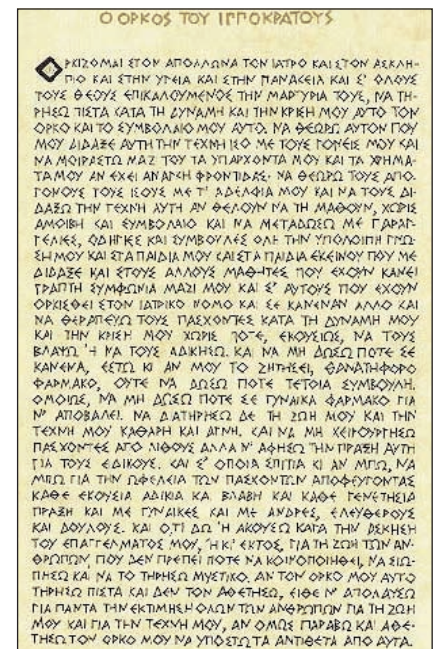 Ο ΟΡΚΟΣ ΤΟΥ ΙΠΠΟΚΡΑΤΟΥΣ
ΟΡΚΙΖΟΜΑΙ ΣΤΟΝ ΑΠΟΛΛΩΝΑ ΤΟΝ ΙΑΤΡΟ ΚΑΙ ΣΤΟΝ ΑΣΚΛΗ-
ΠΙΟ ΚΑΙ ΣΤΗΝ ΥΓΕΙΑ ΚΑΙ ΣΤΗΝ ΠΑΝΑΚΕΙΑ ΚΑΙ Σ' ΟΛΟΥΣ
ΤΟΥΣ ΘΕΟΥΣ ΕΠΙΚΑΛΟΥΜΕΝΟΣ ΤΗΝ ΜΑΡΤΥΡΙΑ ΤΟΥΣ, ΝΑ ΤΗ-
ΡΗΣΩ ΠΙΣΤΑ ΚΑΤΑ ΤΗ ΔΥΝΑΜΗ ΚΑΙ ΤΗΝ ΚΡΙΣΗ ΜΟΥ ΑΥΤΟ ΤΟΝ
ΟΡΚΟ ΚΑΙ ΤΟ ΣΥΜΒΟΛΑΙΟ ΜΟΥ ΑΥΤΟ. ΝΑ ΘΕΩΡΩ ΑΥΤΟΝ ΠΟΥ
ΜΟΥ ΔΙΔΑΞΕ ΑΥΤΗ ΤΗΝ ΤΕΧΝΗ ΙΣΟ ΜΕ ΤΟΥΣ ΓΟΝΕΙΣ ΜΟΥ ΚΑΙ
ΝΑ ΜΟΙΡΑΣΤΩ ΜΑΖΙ ΤΟΥ ΤΑ ΥΠΑΡΧΟΝΤΑ ΜΟΥ ΚΑΙ ΤΑ ΧΡΗΜΑ-
ΤΑ ΜΟΥ ΑΝ ΕΧΕΙ ΑΝΑΓΚΗ ΦΡΟΝΤΙΔΑΣ. ΝΑ ΘΕΩΡΩ ΤΟΥΣ ΑΠΟ-
ΓΟΝΟΥΣ ΤΟΥΣ ΙΣΟΥΣ ΜΕ Τ' ΑΔΕΛΦΙΑ ΜΟΥ ΚΑΙ ΝΑ ΤΟΥΣ ΔΙ-
ΔΑΞΩ ΤΗΝ ΤΕΧΝΗ ΑΥΤΗ ΑΝ ΘΕΛΟΥΝ ΝΑ ΤΗ ΜΑΘΟΥΝ, ΧΩΡΙΣ
ΑΜΟΙΒΗ ΚΑΙ ΣΥΜΒΟΛΑΙΟ ΚΑΙ ΝΑ ΜΕΤΑΔΩΣΩ ΜΕ ΠΑΡΑΓ-
ΓΕΛΙΕΣ, ΟΔΗΓΙΕΣ ΚΑΙ ΣΥΜΒΟΥΛΕΣ ΟΛΗ ΤΗΝ ΥΠΟΛΟΙΠΗ ΓΝΩ-
ΣΗ ΜΟΥ ΚΑΙ ΣΤΑ ΠΑΙΔΙΑ ΜΟΥ ΚΑΙ ΣΤΑ ΠΑΙΔΙΑ ΕΚΕΙΝΟΥ ΠΟΥ ΜΕ
ΔΙΔΑΞΕ ΚΑΙ ΣΤΟΥΣ ΑΛΛΟΥΣ ΜΑΘΗΤΕΣ ΠΟΥ ΕΧΟΥΝ ΚΑΝΕΙ
ΓΡΑΠΤΗ ΣΥΜΦΩΝΙΑ ΜΑΖΙ ΜΟΥ ΚΑΙ Σ' ΑΥΤΟΥΣ ΠΟΥ ΕΧΟΥΝ
ΟΡΚΙΣΘΕΙ ΣΤΟΝ ΙΑΤΡΙΚΟ ΝΟΜΟ ΚΑΙ ΣΕ ΚΑΝΕΝΑΝ ΑΛΛΟ ΚΑΙ
ΝΑ ΘΕΡΑΠΕΥΩ ΤΟΥΣ ΠΑΣΧΟΝΤΕΣ ΚΑΤΑ ΤΗ ΔΥΝΑΜΗ ΜΟΥ
ΚΑΙ ΤΗΝ ΚΡΙΣΗ ΜΟΥ ΧΩΡΙΣ ΠΟΤΕ, ΕΚΟΥΣΙΩΣ, ΝΑ ΤΟΥΣ
ΒΛΑΨΩ Ή ΝΑ ΤΟΥΣ ΑΔΙΚΗΣΩ. ΚΑΙ ΝΑ ΜΗ ΔΩΣΩ ΠΟΤΕ ΣΕ
ΚΑΝΕΝΑ, ΕΣΤΩ ΚΙ ΑΝ ΜΟΥ ΤΟ ΖΗΤΗΣΕΙ, ΘΑΝΑΤΗΦΟΡΟ
ΦΑΡΜΑΚΟ, ΟΥΤΕ ΝΑ ΔΩΣΩ ΠΟΤΕ ΤΕΤΟΙΑ ΣΥΜΒΟΥΛΗ.
ΟΜΟΙΩΣ, ΝΑ ΜΗ ΔΩΣΩ ΠΟΤΕ ΣΕ ΓΥΝΑΙΚΑ ΦΑΡΜΑΚΟ ΓΙΑ
Ν' ΑΠΟΒΑΛΕΙ. ΝΑ ΔΙΑΤΗΡΗΣΩ ΔΕ ΤΗ ΖΩΗ ΜΟΥ ΚΑΙ ΤΗΝ
ΤΕΧΝΗ ΜΟΥ ΚΑΘΑΡΗ ΚΑΙ ΑΓΝΗ. ΚΑΙ ΝΑ ΜΗ ΧΕΙΡΟΥΡΓΗΣΩ
ΠΑΣΧΟΝΤΕΣ ΑΠΟ ΛΙΘΟΥΣ ΑΛΛΑ Ν' ΑΦΗΣΩ ΤΗΝ ΠΡΑΞΗ ΑΥΤΗ
ΓΙΑ ΤΟΥΣ ΕΔΙΚΟΥΣ. ΚΑΙ Σ' ΟΠΟΙΑ ΣΠΙΤΙΑ ΚΙ ΑΝ ΜΠΩ, ΝΑ
ΜΠΩ ΓΙΑ ΤΗΝ ΩΦΕΛΕΙΑ ΤΩΝ ΠΑΣΧΟΝΤΩΝ ΑΠΟΦΕΥΓΟΝΤΑΣ
ΚΑΘΕ ΕΚΟΥΣΙΑ ΑΔΙΚΙΑ ΚΑΙ ΒΛΑΒΗ ΚΑΙ ΚΑΘΕ ΓΕΝΕΤΗΣΙΑ
ΠΡΑΞΗ ΚΑΙ ΜΕ ΓΥΝΑΙΚΕΣ ΚΑΙ ΜΕ ΑΝΔΡΕΣ, ΕΛΕΥΘΕΡΟΥΣ
ΚΑΙ ΔΟΥΛΟΥΣ. ΚΑΙ Ο,ΤΙ ΔΩ Ή ΑΚΟΥΣΩ ΚΑΤΑ ΤΗΝ ΑΣΚΗΣΗ
ΤΟΥ ΕΠΑΓΓΕΛΜΑΤΟΣ ΜΟΥ, Ή ΚΙ' ΕΚΤΟΣ, ΓΙΑ ΤΗ ΖΩΗ ΤΩΝ ΑΝ-
ΘΡΩΠΩΝ, ΠΟΥ ΔΕΝ ΠΡΕΠΕΙ ΠΟΤΕ ΝΑ ΚΟΙΝΟΠΟΙΗΘΕΙ, ΝΑ ΣΙΩ-
ΠΗΣΩ ΚΑΙ ΝΑ ΤΟ ΤΗΡΗΣΩ ΜΥΣΤΙΚΟ. ΑΝ ΤΟΝ ΟΡΚΟ ΜΟΥ ΑΥΤΟ
ΤΗΡΗΣΩ ΠΙΣΤΑ ΚΑΙ ΔΕΝ ΤΟΝ ΑΘΕΤΗΣΩ, ΕΙΘΕ Ν' ΑΠΟΛΑΥΣΩ
ΓΙΑ ΠΑΝΤΑ ΤΗΝ ΕΚΤΙΜΗΣΗ ΟΛΩΝ ΤΩΝ ΑΝΘΡΩΠΩΝ ΓΙΑ ΤΗ ΖΩΗ
ΜΟΥ ΚΑΙ ΓΙΑ ΤΗΝ ΤΕΧΝΗ ΜΟΥ, ΑΝ ΟΜΩΣ ΠΑΡΑΒΩ ΚΑΙ ΑΘΕ-
ΤΗΣΩ ΤΟΝ ΟΡΚΟ ΜΟΥ ΝΑ ΥΠΟΣΤΩ ΤΑ ΑΝΤΙΘΕΤΑ ΑΠΟ ΑΥΤΑ.